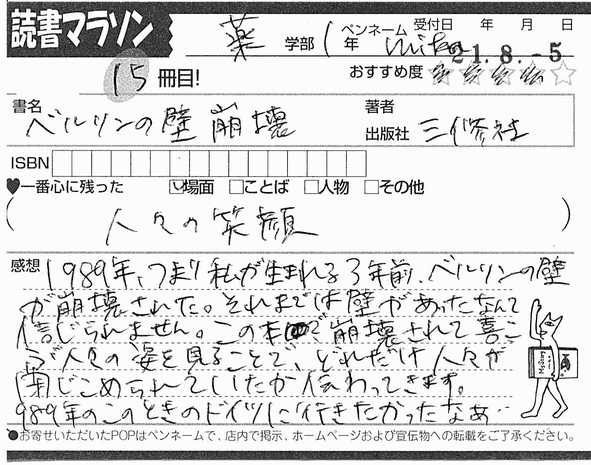 読書マラソン
薬 学部 1年 ペンネーム mitea 受付日 年 月 日
21.8.-5
15冊目! おすすめ度 ☆☆☆☆☆
書名 ベルリンの壁崩壊
著者
出版社 三修社
ISBN
♥一番心に残った ☑場面 □ことば □人物 □その他
( 人々の笑顔 )
感想 1989年、つまり私が生まれる3年前、ベルリンの壁
が崩壊された。それまでは壁があったなんて
信じられません。この本で、崩壊されて喜こ
ぶ人々の姿を見ることで、どれだけ人々が
閉じこめられていたか伝わってきます。
1989年のこのときのドイツに行きたかったなあ…
●お寄せいただいたPOPはペンネームで、店内で掲示、ホームページおよび宣伝物への転載をご了承ください。